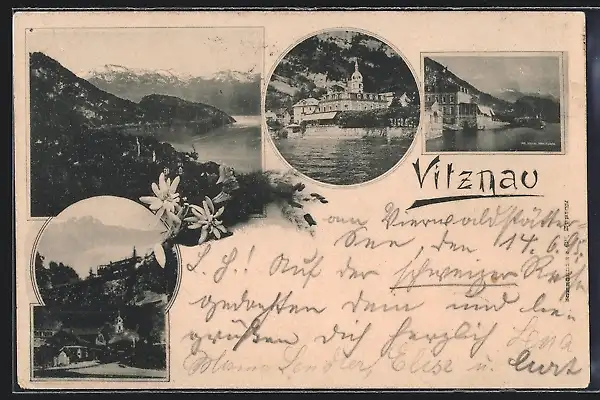 Vitznau
am Vierwaldstätter-
See, den 14.6.95.
L. H.! Auf der schweizer Reise
gedachten dein und be-
grüßen Dich herzlich Lina
Mama Sendler, Elise u. Curt